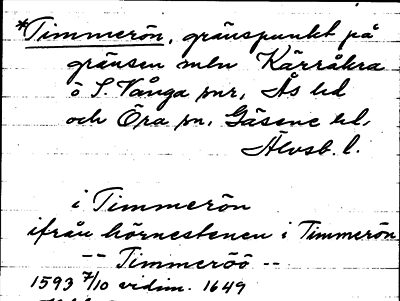 *Timmerön, gränspunkt på
gränsen mln Kärråkra
o S. Vånga snr, Ås hd
och Öra sn, Gäsene hd,
Älvsb. l.
i Timmerön
ifrån hörnestenen i Timmerön
-- Timmeröö --
1593 7/10 vidim. 1649